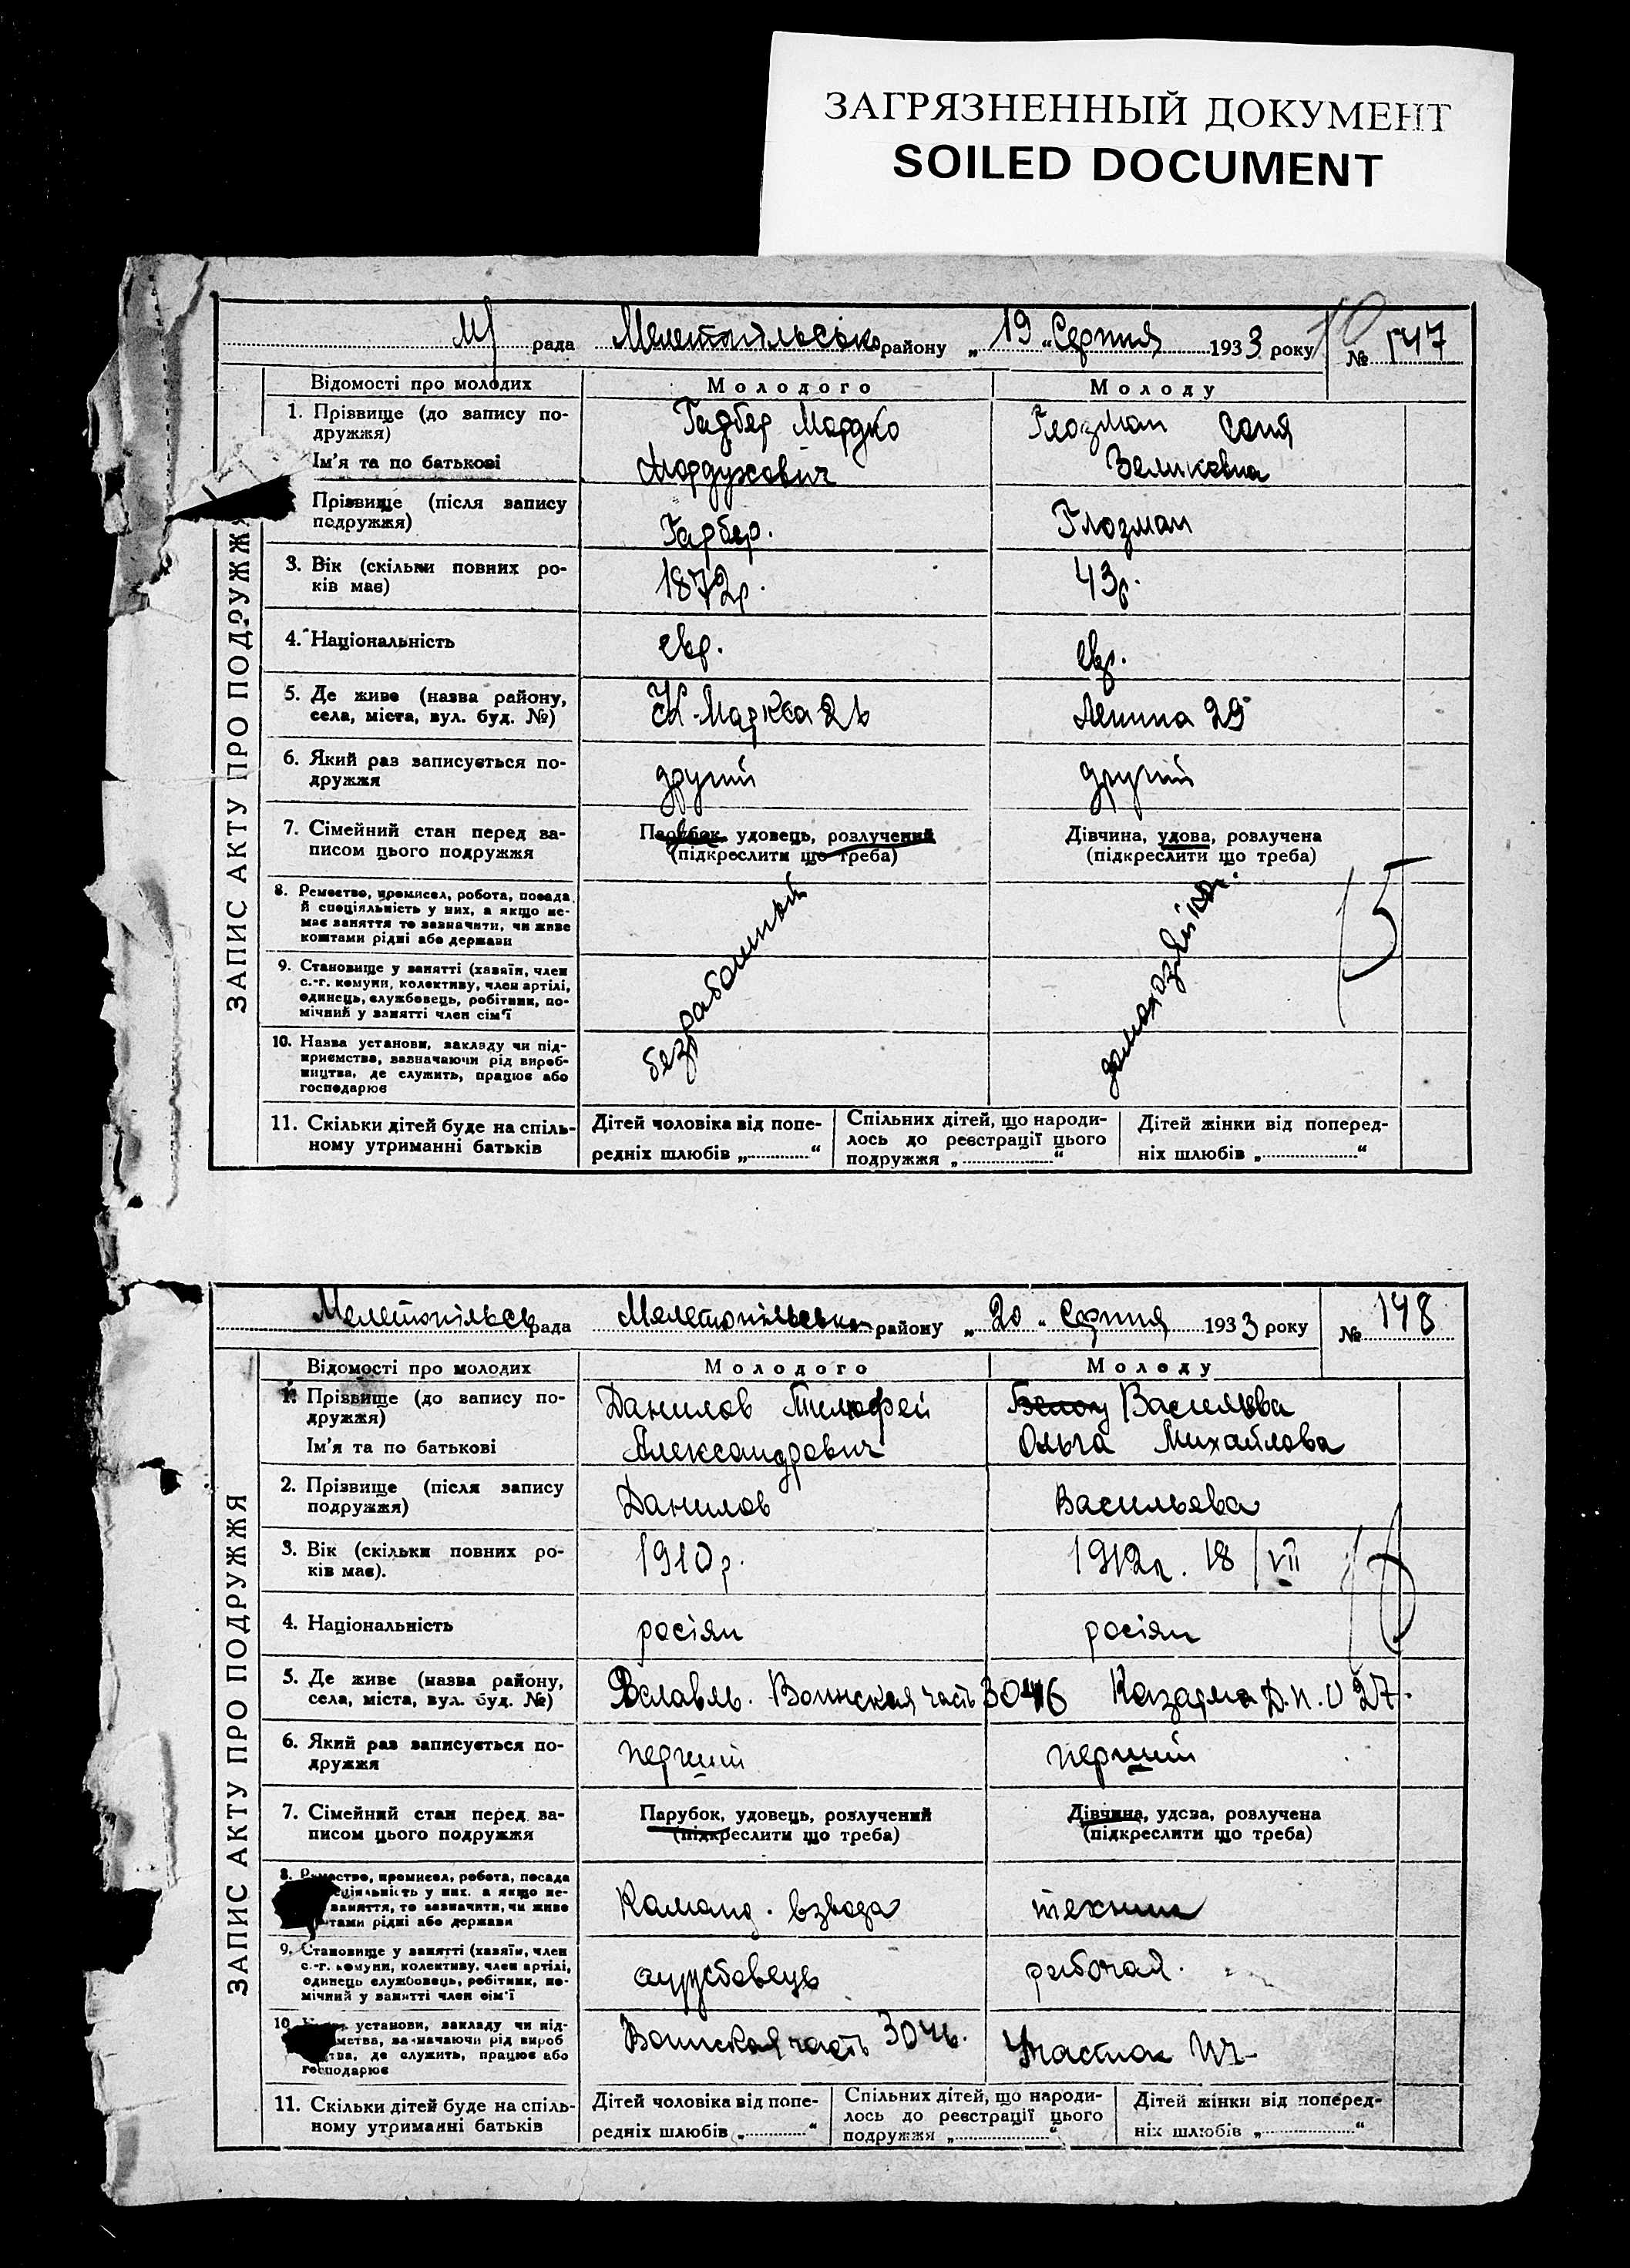 ЗАГРЯЗНЕННЫЙ ДОКУМЕНТ
SOILED DOCUMENT
ЗАПИС АКТУ ПРО ПОДРУЖЖЯ
рада Мелетопільсько району „19“ Серпня 1933 року № 147
Відомості про молодих
Молодого
Молоду
1. Прізвище (до запису по-
дружжя)
Ім'я та по батькові
Гарбер Мордко
Мордухович
Глозман Соня
Зеликовна
Прізвище (після запису
подружжя)
Гарбер.
Глозман
3. Вік (скільки повних ро-
ків має)
1872р.
43р.
4. Національність
евр.
евр.
5. Де живе (назва району,
села, міста, вул. буд. №)
К-Маркса 2
Ленина 29
6. Який раз записується по-
дружжя
другий
другий
7. Сімейний стан перед за-
писом цього подружжя
Парубок, удовець, розлучений
(підкреслити що треба)
Дівчина, удова, розлучена
(підкреслити що треба)
8. Ремество, промисел, робота, посада
й спеціяльність у них, а якщо не-
має заняття то зазначити, чи живе
коштами рідні або держави
9. Становище у занятті (хазяїн, член
с.-г. комуни, колективу, член артілі,
одинець, службовець, робітник, по-
мічний у занятті член сім'ї
10. Назва установи, закладу чи під-
приємства, зазначаючи рід вироб-
ництва, де служить, працює або
господарює
безработный
домохозяйка.
15
11. Скільки дітей буде на спіль-
ному утриманні батьків
Дітей чоловіка від попе-
редніх шлюбів „ “
Спільних дітей, що народи-
лось до реєстрації цього
подружжя „ “
Дітей жінки від поперед-
ніх шлюбів „ “
ЗАПИС АКТУ ПРО ПОДРУЖЖЯ
Мелетопільсь рада Мелетопільсько району „20“ Серпня 1933 року № 148
Відомості про молодих
Молодого
Молоду
1. Прізвище (до запису по-
дружжя)
Ім'я та по батькові
Данилов Тимофей
Александрович
Васильева
Ольга Михайлова
2. Прізвище (після запису
подружжя)
Данилов
Васильева
3. Вік (скільки повних ро-
ків має).
1910р.
1912р. 18/VII
4. Національність
росіян
росіян
5. Де живе (назва району,
села, міста, вул. буд. №)
Воинская часть 3046
Казарма Д.п.О 27.
6. Який раз записується по-
дружжя
перший
перший
7. Сімейний стан перед за-
писом цього подружжя
Парубок, удовець, розлучений
(підкреслити що треба)
Дівчина, удова, розлучена
(підкреслити що треба)
8. Ремество, промисел, робота, посада
спеціяльність у них, а якщо не-
заняття, то зазначити, чи живе
коштами рідні або держави
Команд. взвода
техник
9. Становище у занятті (хазяїн, член
с.-г. комуни, колективу, член артілі,
одинець службовець, робітник, по-
мічний у занятті член сім'ї
службовець
рабочая.
10. установи, закладу чи під-
приємства, зазначаючи рід вироб
ництва, де служить, працює або
господарює
Воинская часть 3046.
Участок
11. Скільки дітей буде на спіль-
ному утриманні батьків
Дітей чоловіка від попе-
редніх шлюбів „ “
Спільних дітей, що народи-
лось до реєстрації цього
подружжя „ “
Дітей жінки від поперед-
ніх шлюбів „ “